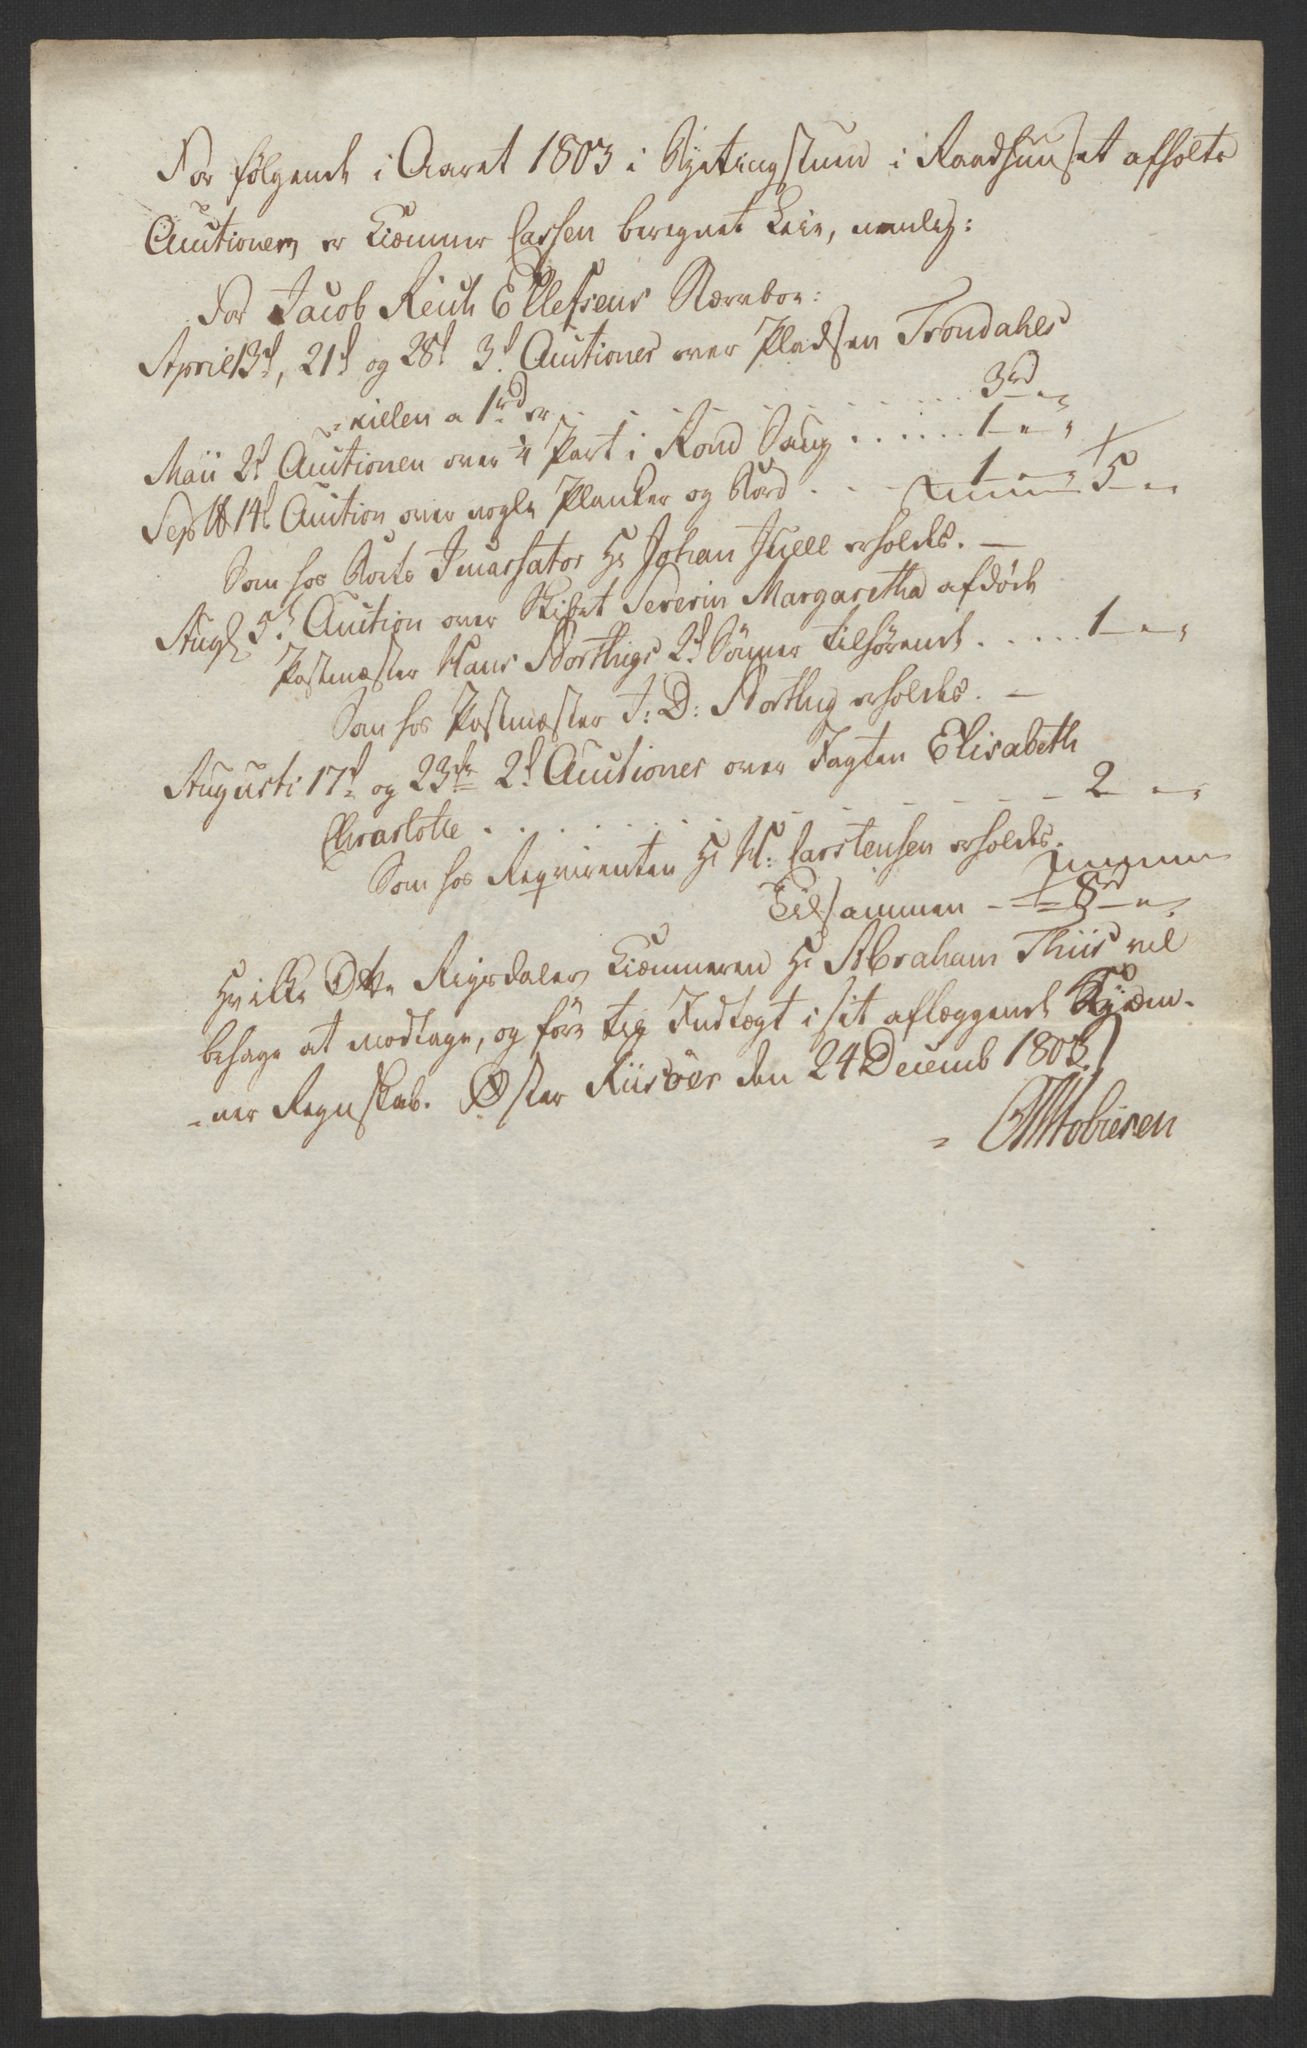 For følgende i Aaret 1803 i Byetingstuen i Raadhuuset afholte
Auctioner er Kiæmner Cassen beregnet Leie, nemlig:
For Jacob Reich Ellefsens Stervboe:
April 13d, 21d og 28d 3d Auctioner over Pladsen Trondahls
=kiilen a 1rd er . . . . . . . . . . 3rd " "
Maii 2d Auctionen over 1/4 Part i Rønd Saug . . . . . . 1 " "
Septbr 14d Auction over nogle Planker og Bord . . . 1 " " 5 " "
Som hos Boets Incassator Hr Johan Juell erholdes. —
Augt 5d Auction over Skibet Severin Margaretha afdøde
Postmæster Hans Northugs 2d Sønner tilhørende . . . . . 1 " "
Som hos Postmæster J: D: Northug erholdes. —
Augusti 17d og 23de 2d Auctioner over Jagten Elisabeth
Charlotte . . . . . . . . . . 2 " "
Som hos Reqvirenten Hr N: Carstensen erholdes.
Tilsammen - 8rd " "
Hvilke Otte Rigsdaler Kiæmneren Hr Abraham Thiis vil
behage at modtage, og føre til Indtægt i sit aflæggende Kjæm-
=ner Regnskab. Øster Riisöer den 24 Decemb 1803.